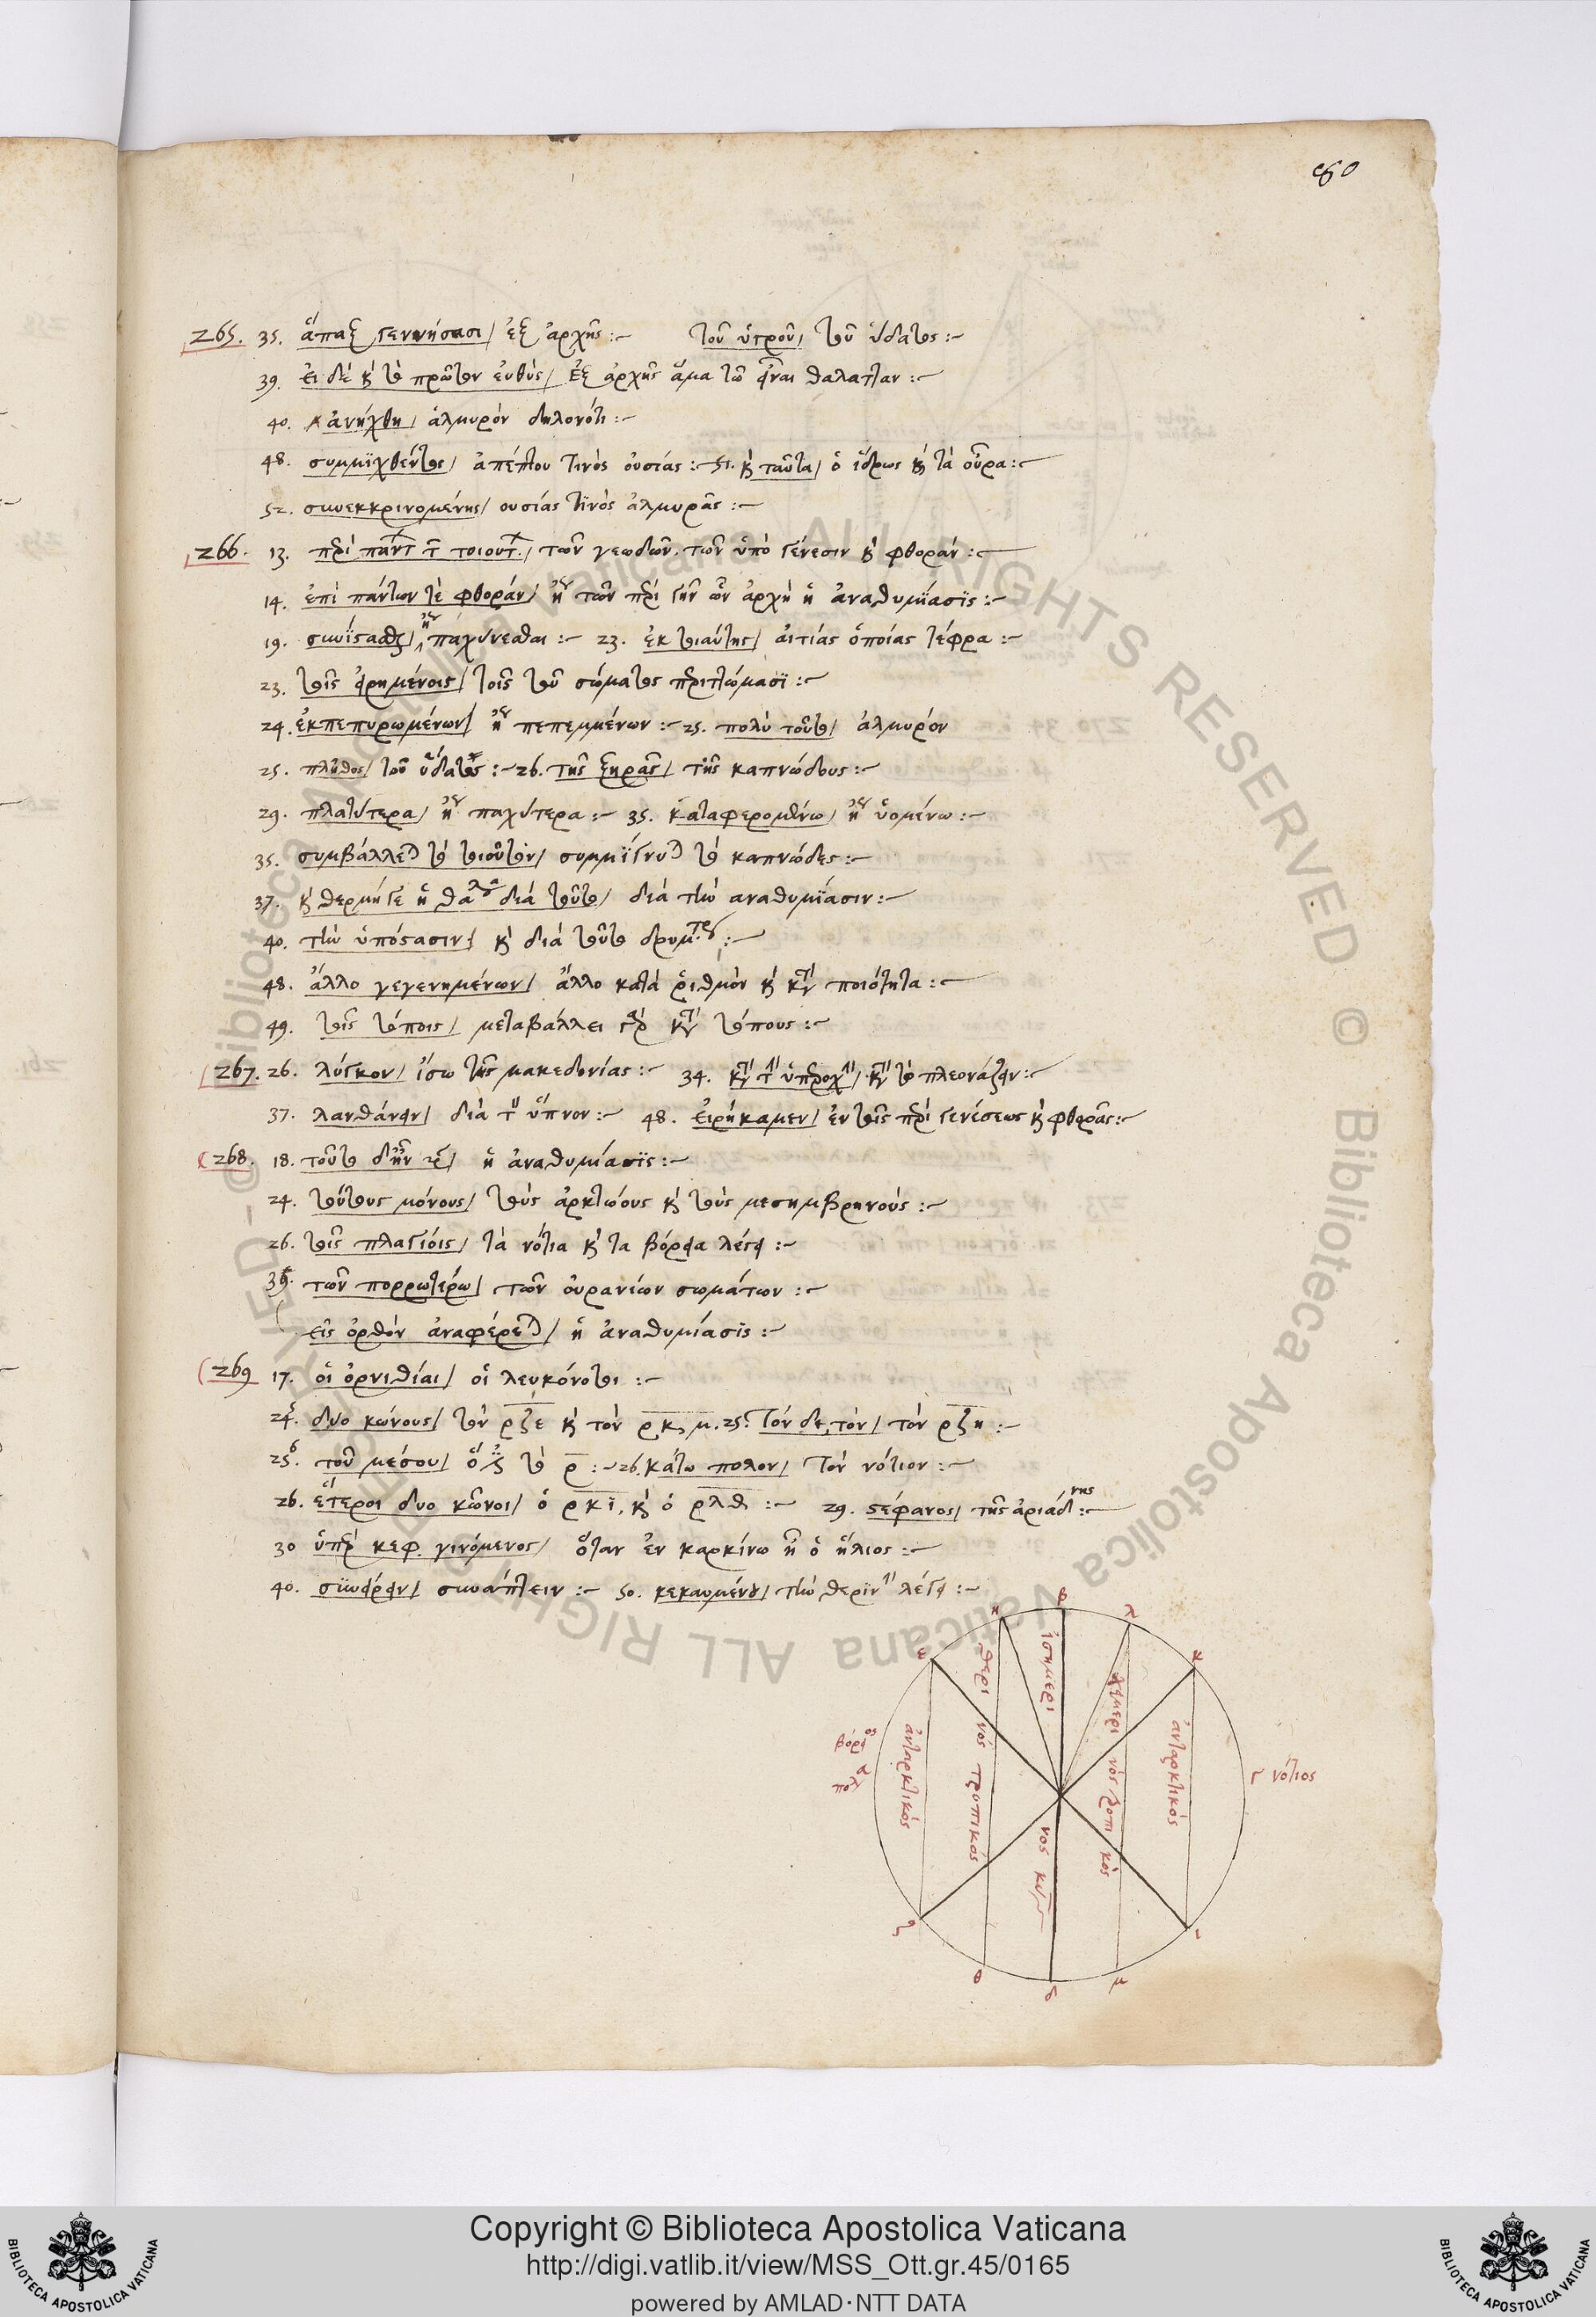 265. 35. ἅπαξ γεννήσασι/ ἐξ ἀρχῆς :~ τοῦ ὑγροῦ/ τοῦ ὕδατος :~
39. εἰ δὲ κ τὸ πρῶτον εὐθὺς/ ἐξ ἀρχῆς ἅμα τῶ εἶναι θάλατταν :~
40. ἀνήχθη/ ἁλμυρόν δηλονότι :~
48. συμμϊχθέντος/ ἀπέπτου τινὸς οὐσίας :~ 51. κ ταῦτα/ ὁ ἵδρως κ τὰ οὖρα :~
52. συνεκκρινομένης/ ουσίας τϊνὸς ἁλμυρᾶς :~
266. 13. περὶ παντ τ τοιουτ./ τῶν γεωδῶν. τῶν ὑπὸ γένεσιν κ φθοράν :~
14. ἐπὶ πάντων τὲ φθοράν/ ἢ τῶν περὶ γῆν ὧν ἀρχὴ ἡ ἀναθυμϊασϊς :~
19. συνίστασθαι/ ἢ παχύνεσθαι :~ 23. ἐκ τοιαύτης/ αἰτίας ὁποίας τέφρα :~
23. τοῖς εἰρημένοις/ τοῖς τοῦ σώματος περιττώμασϊ :~
24. ἐκπεπυρωμένων/ ἢ πεπεμμένων :~ 25. πολὺ τοῦτο/ ἁλμυρόν
25. πλῆθος/ τοῦ ὕδατος :~ 26. τῆς ξηρᾶς/ τῆς καπνώδους :~
29. πλατύτερα/ ἢ παχύτερα :~ 35. καταφερομένω/ ἢ ὑομένω :~
35. συμβάλλεται τὸ τοιοῦτον/ συμμϊγνυται τὸ καπνῶδες :~
37. κ θερμή γε ἡ θαλα διὰ τοῦτο/ διὰ τὴν αναθυμϊασιν :~
40. τὴν ὑπόστασιν/ κ διὰ τοῦτο δρυμτε :~
48. ἄλλο γεγενημένων/ ἄλλο κατὰ ἀριθμὸν κ κτ ποιότητα :~
49. τοῖς τόποις/ μεταβάλλει γὰρ κτ τόπους :~
267. 26. λύγκον/ ἴσω τῆς μακεδονίας :~ 34. κτ τ ὑπεροχὴν/ κτ τὸ πλεονάζειν :~
37. λανθάνειν/ διὰ τ ὕπνον :~ 48. εἰρήκαμεν/ ἐν τοῖς περὶ γενέσεως κ φθορᾶς :~
268. 18. ἡ ἀναθυμίασϊς :~
24. τούτους μόνους/ τοὺς ἀρκτώους κ τοὺς μεσημβρηνούς :~
26. τοῖς πλαγίοις/ τὰ νότια κ τα βόρεια λέγει :~
39. τῶν πορρωτέρω/ τῶν οὐρανίων σωμάτων :~
εἰς ὀρθὸν ἀναφέρεται/ ἡ ἀναθυμίασϊς :~
269 17. οἱ ὀρνιθίαι/ οἱ λευκόνοτοι :~
24. δυο κώνους/ τὸν ρζε κ τὸν ρκ, μ. 25. τόν δε, τόν/ τὸν ρζη :~
25. τοῦ μέσου/ τὸ ρ :~ 26. κάτω πολον/ τὸν νότιον :~
26. ἕτεροι δυο κῶνοι/ ὁ ρκϊ, κ ὁ ρλθ :~ 29. στέφανος/ τῆς ἀριάδνης :~
30 ὑπὲρ κεφ. γινόμενος/ ὅταν ἐν καρκίνω ἦ ὁ ἥλιος :~
40. συνείρειν/ συνάπτειν :~ 50. κεκαυμένην/ τὴν θερϊνὴν λέγει :~
ε η β λ κ
θερινός τροπικός
ἰσημερινος κυ
χειμερινὸς τροπικός
ἀνταρκτικός
ἀνταρκτικός
βόρειος
πολ α
γ νότιος
ζ θ δ μ ι
Copyright © Biblioteca Apostolica Vaticana
http://digi.vatlib.it/view/MSS_Ott.gr.45/0165
powered by AMLAD·NTT DATA
BIBLIOTECA APOSTOLICA VATICANA
BIBLIOTECA APOSTOLICA VATICANA
© Biblioteca Apostolica Vaticana ALL RIGHTS RESERVED © Biblioteca Apostolica Vaticana ALL RIGHTS RESERVED -